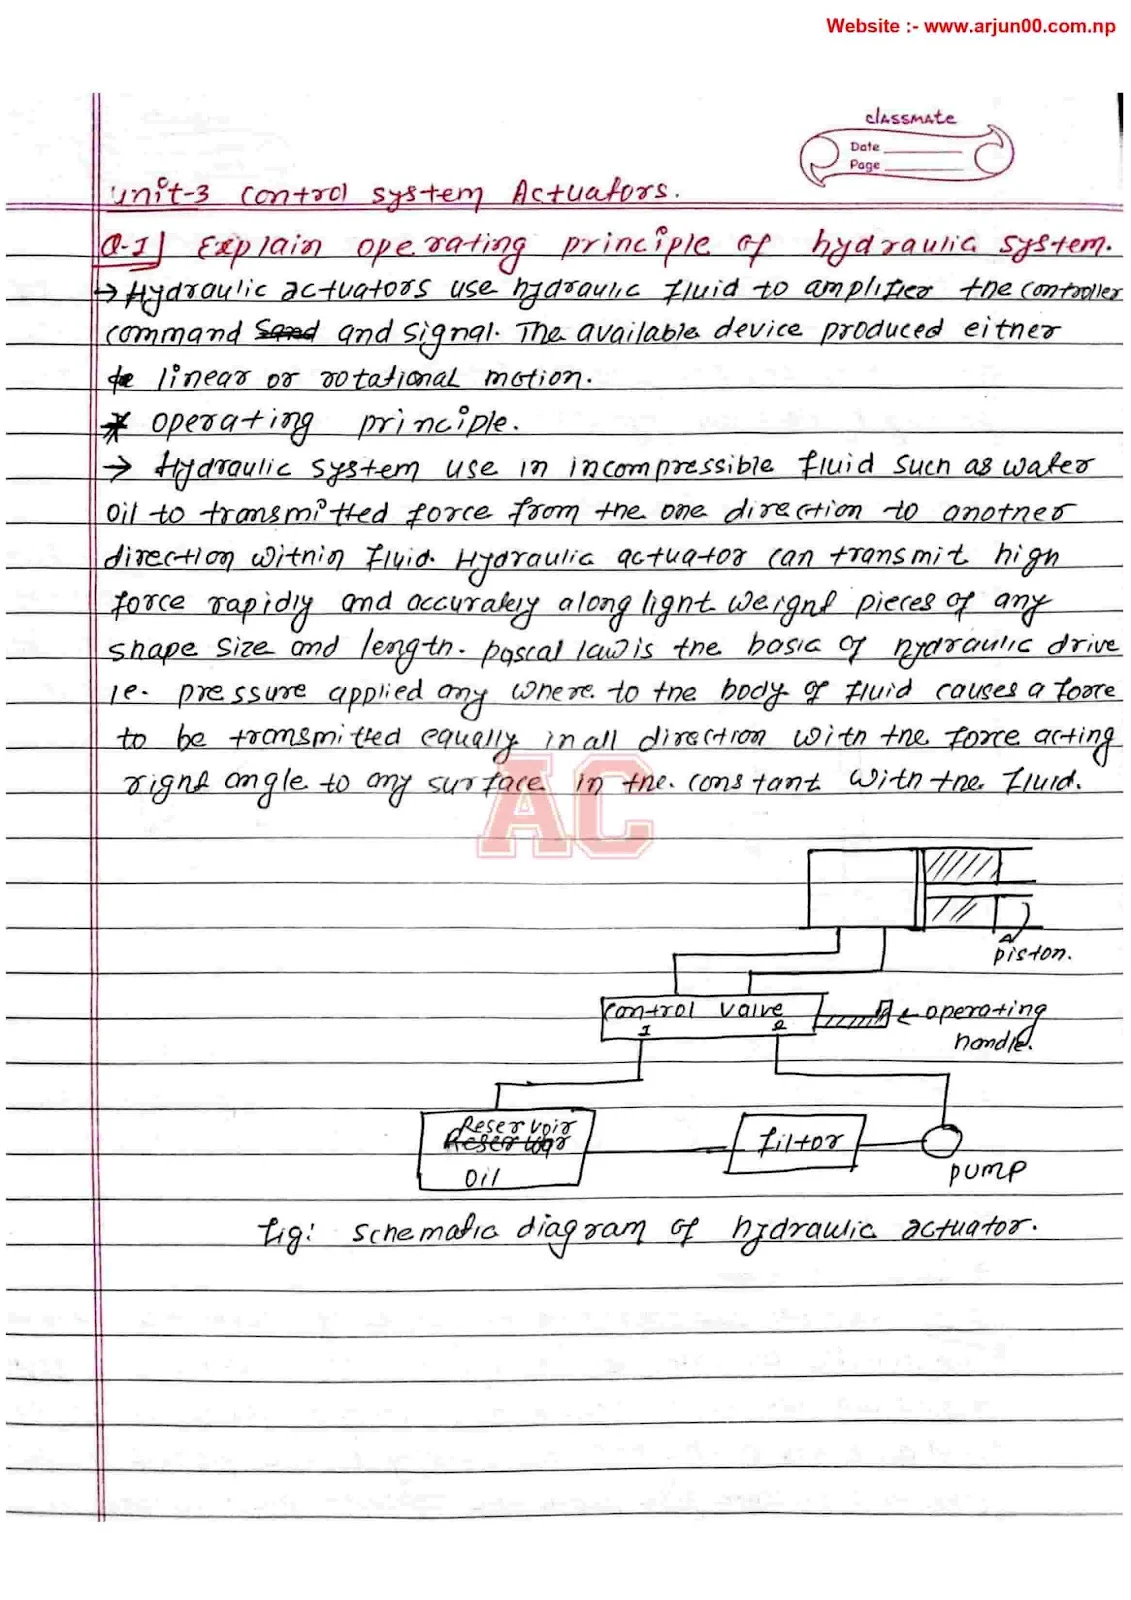 Website :- www.arjun00.com.np
classmate
Date
Page
Unit-3 Control System Actuators.
Q-1] Explain operating principle of hydraulic system.
→ Hydraulic actuators use hydraulic fluid to amplifier the controller
command Sand and signal. The available device produced either
linear or rotational motion.
* Operating principle.
→ Hydraulic system use in incompressible fluid such as water
oil to transmitted force from the one direction to another
direction within fluid. Hydraulic actuator can transmit high
force rapidly and accurately along light weight pieces of any
shape size and length. pascal law is the basic of hydraulic drive
ie. pressure applied any where to the body of fluid causes a force
to be transmitted equally in all direction with the force acting
right angle to any surface in the constant with the fluid.
AC
piston.
Control Valve
1 2
← operating
handle.
Reservoir
Oil
filtor
pump
fig: Schematic diagram of hydraulic actuator.